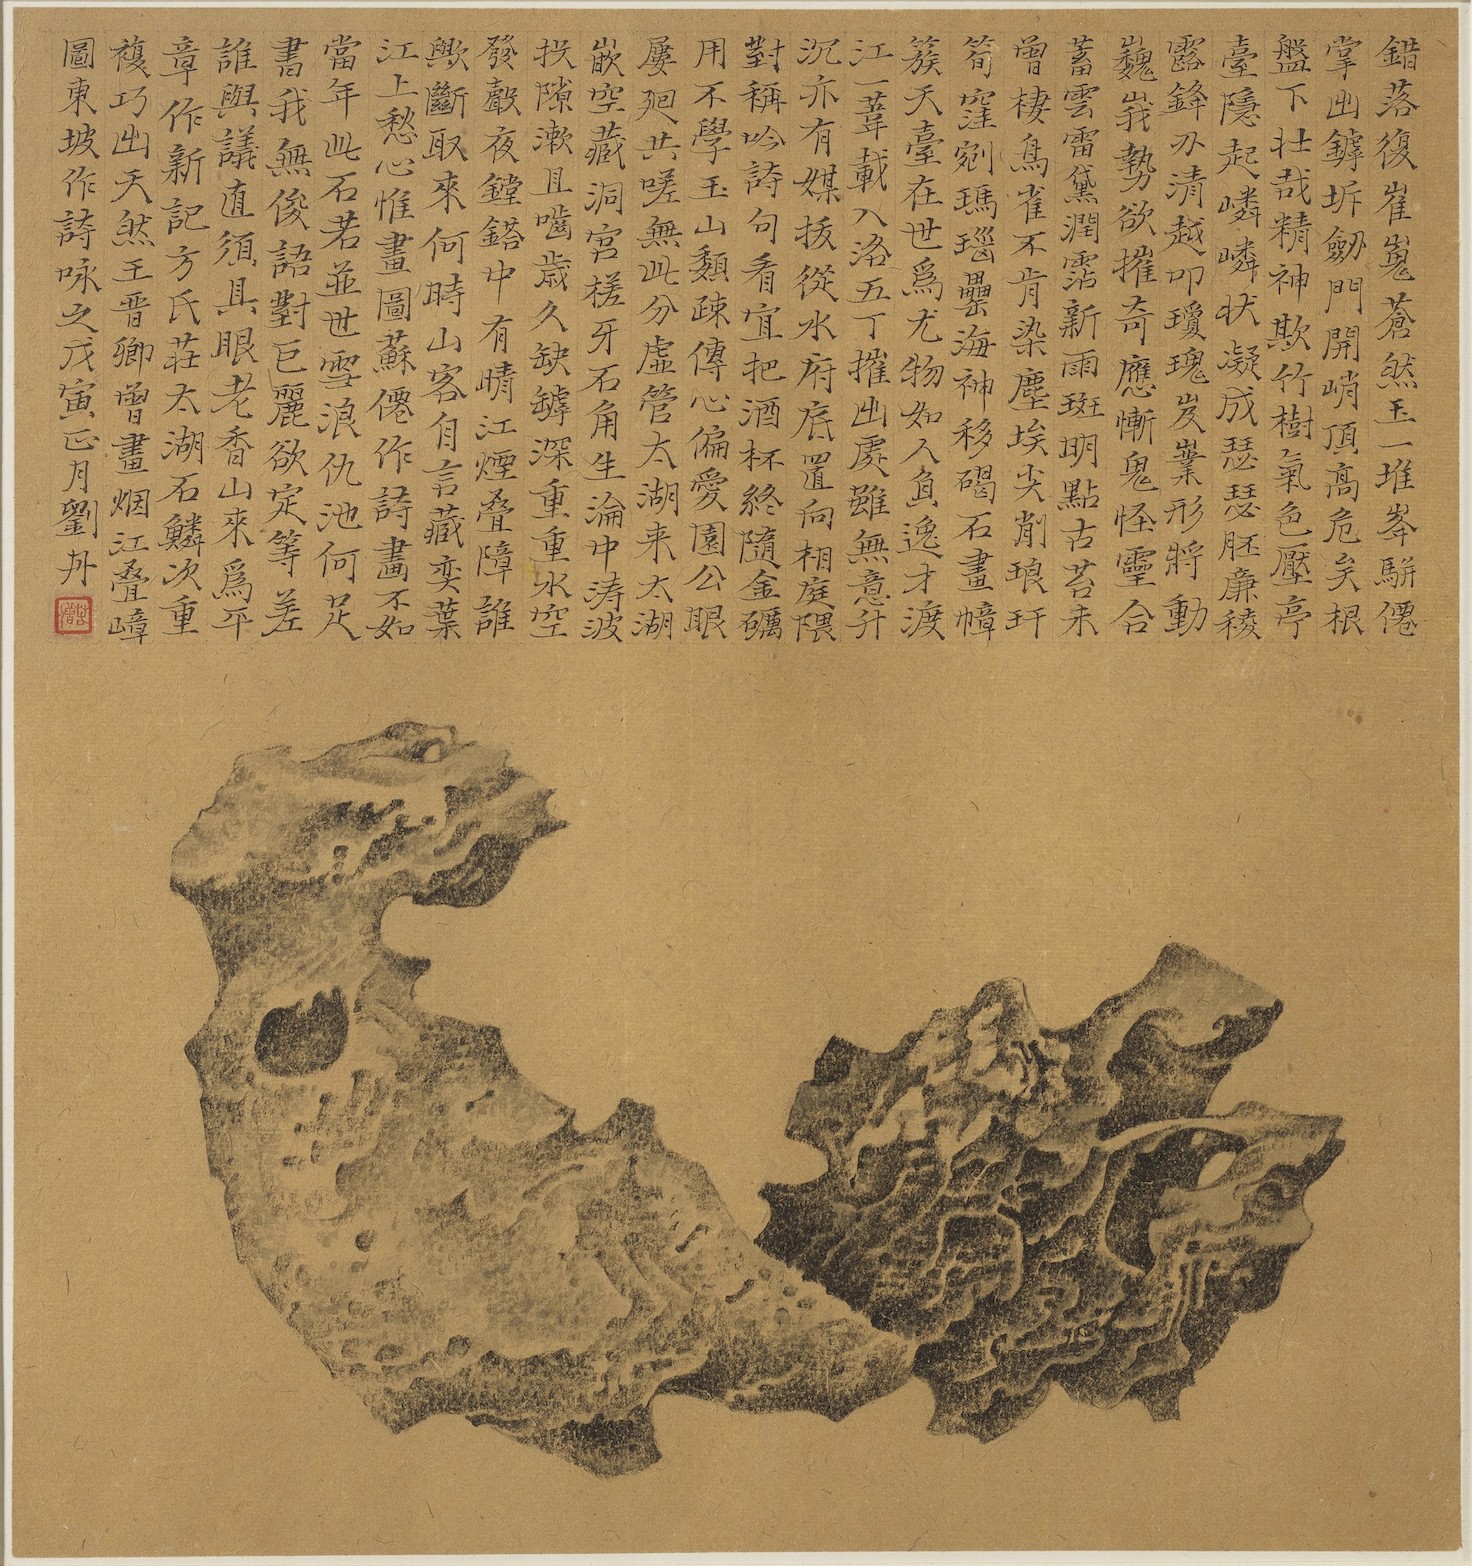 錯落復崔嵬蒼然玉一堆峯駢僊
掌出罅坼劒門開峭頂高危矣根
盤下壯哉精神欺竹樹氣色壓亭
臺隱起嶙嶙状凝成瑟瑟胚廉稜
露鋒刃清越叩瓊瑰岌嶪形將動
巍峩勢欲摧奇應慚鬼怪靈合
蓄雲雷黛潤霑新雨斑明點古苔未
曾棲鳥雀不肯染塵埃尖削琅玕
筍窪剜瑪瑙罍海神移碣石畫幛
簇天臺在世爲尤物如人負逸才渡
江一葦載入洛五丁摧出處雖無意升
沉亦有媒拔從水府底置向相庭隈
對稱吟詩句看宜把酒杯終隨金礪
用不學玉山頹疎傅心偏愛園公眼
屢廻共嗟無此分虛管太湖来太湖
嵌空藏洞宮槎牙石角生淪中涛波
投隙漱且嚙歲久缺罅深重重水空
發聲夜鏜鎝中有晴江煙疊障誰
歟斷取來何時山客自言藏奕葉
江上愁心惟畫圖蘇僊作詩畫不如
當年此石若並世雪浪仇池何足
書我無俊語對巨麗欲定等差
誰與議直須具眼老香山來爲平
章作新記方氏莊太湖石鱗次重
複巧出天然王晋卿曾畫烟江疊嶂
圖東坡作詩咏之戊寅正月劉丹